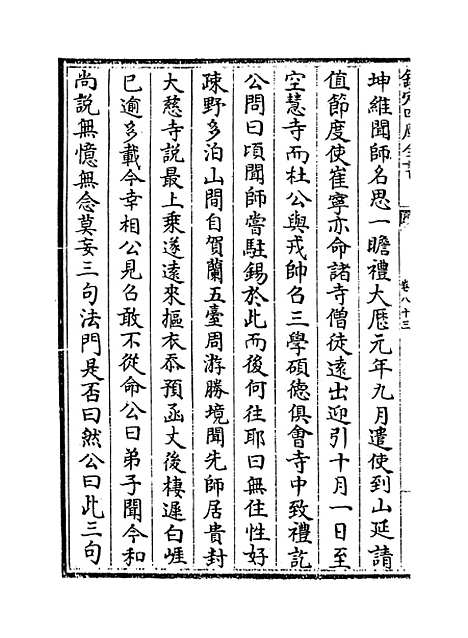 坤維聞師名思一瞻禮大厯元年九月遣使到山延請
值節度使崔寧亦命諸寺僧徒遠出迎引十月一日至
空慧寺而杜公與戎帥名三學碩德俱會寺中致禮訖
公問曰頃聞師嘗駐錫於此而後何往耶曰無住性好
疎野多泊山間自賀蘭五臺周游勝境聞先師居貴封
大慈寺説最上乘遂遠來摳衣忝預函丈後棲遲白崖
已逾多載今幸相公見召敢不從命公曰弟子聞今和
尚説無憶無念莫妄三句法門是否曰然公曰此三句
卷八十三